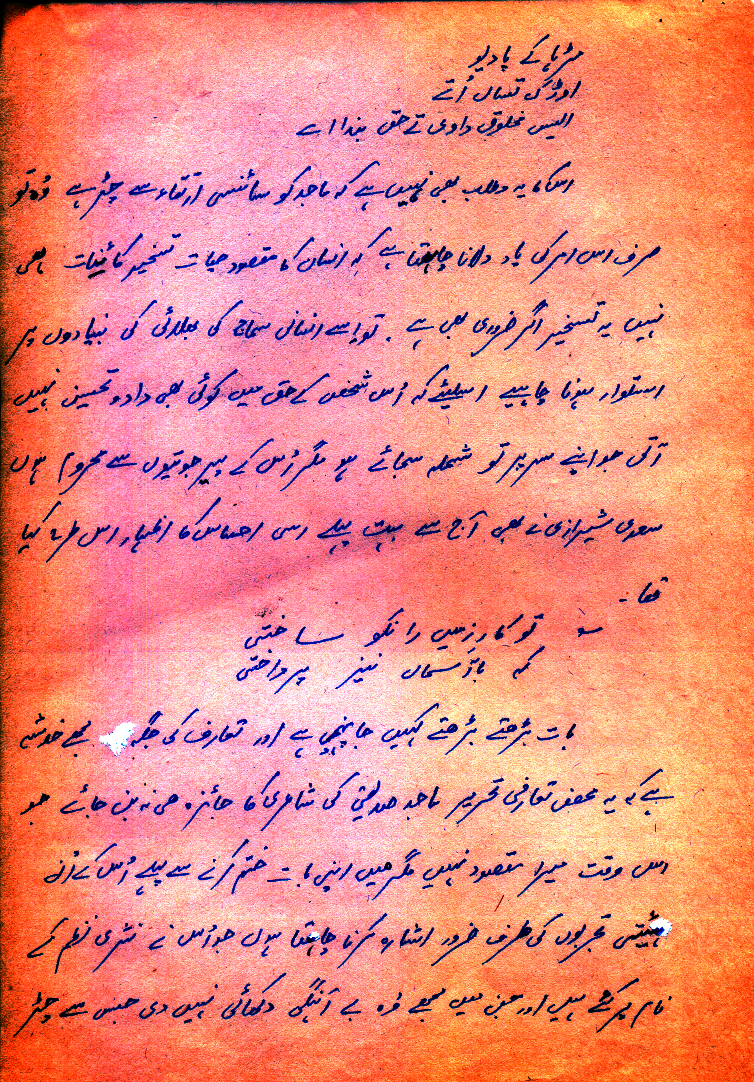 اوڑک تساں اُتے
ایس مخلوق دا وی تے حق بندا اے
اس کا یہ مطلب بھی نہیں ہے کہ ماجد کو سائنسی ارتقاء سے چڑ ہے وُہ تو
صرف اس امر کی یاد دلانا چاہتا ہے کہ انسان کا مقصود حیات تسخیر کائنات بھی
نہیں یہ تسخیر اگر ضروری بھی ہے ۔ تو اسے انسانی سماج کی بھلائی کی بنیادوں پر
استوار ہونا چاہیے اسلیئے کہ اُس شخص کے حق میں کوئی بھی داد و تحسین نہیں
آتی جو اپنے سر پر تو شملہ سجائے ہو مگر اُس کے پیر جوتیوں سے محروم ہوں
سعدی شیرازی نے بھی آج سے بہت پہلے اسی احساس کا اظہار اس طرح کیا
تھا ۔
تو کارِ زمیں را نکو ساختی
کہ با آسماں نیز پرداختی
بات بڑھتے بڑھتے کہیں جا پہنچی ہے اور تعارف کی جگہ مجھے خدشہ
ہے کہ یہ محض تعارفی تحریر ماجد صدیقی کی شاعری کا جائزہ ہی نہ بن جائے جو
اس وقت میرا مقصود نہیں مگر میں اپنی بات ختم کرنے سے پہلے اُس کے اُن
ہیئتی تجربوں کی طرف ضرور اشارہ کرنا چاہتا ہوں جو اُس نے نثری نظم کے
نام پر کئے ہیں اور جن میں مجھے وُہ بے آہنگی دکھائی نہیں دی جس سے چڑ